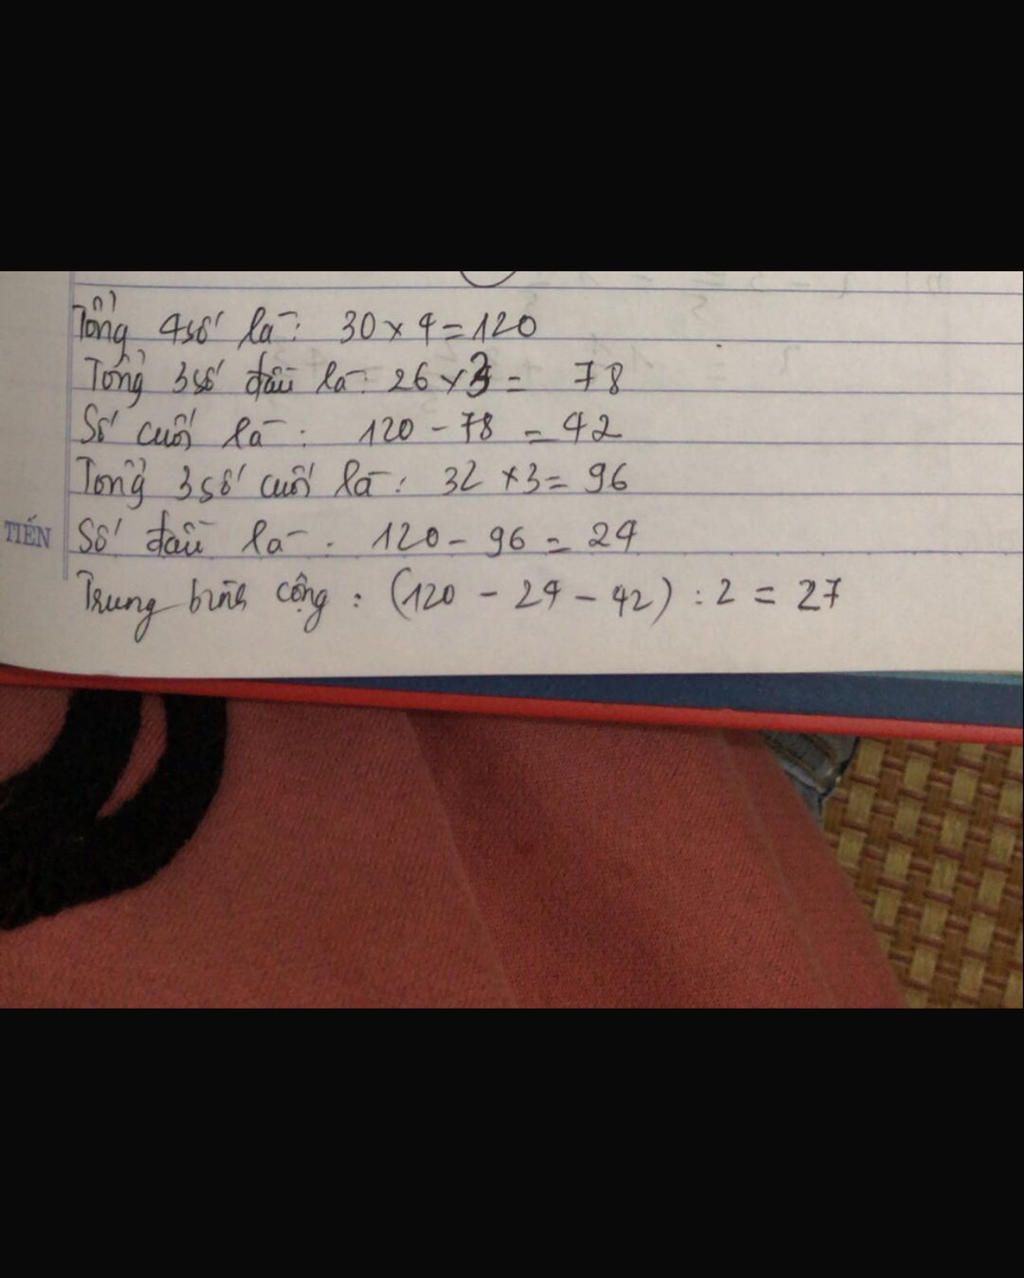 Tổng 4 số là: 30 x 4 = 120
Tổng 3 số đầu là: 26 x 3 = 78
Số cuối là: 120 - 78 = 42
Tổng 3 số cuối là: 32 x 3 = 96
TIẾN
Số đầu là: 120 - 96 = 24
Trung bình cộng: (120 - 24 - 42) : 2 = 27